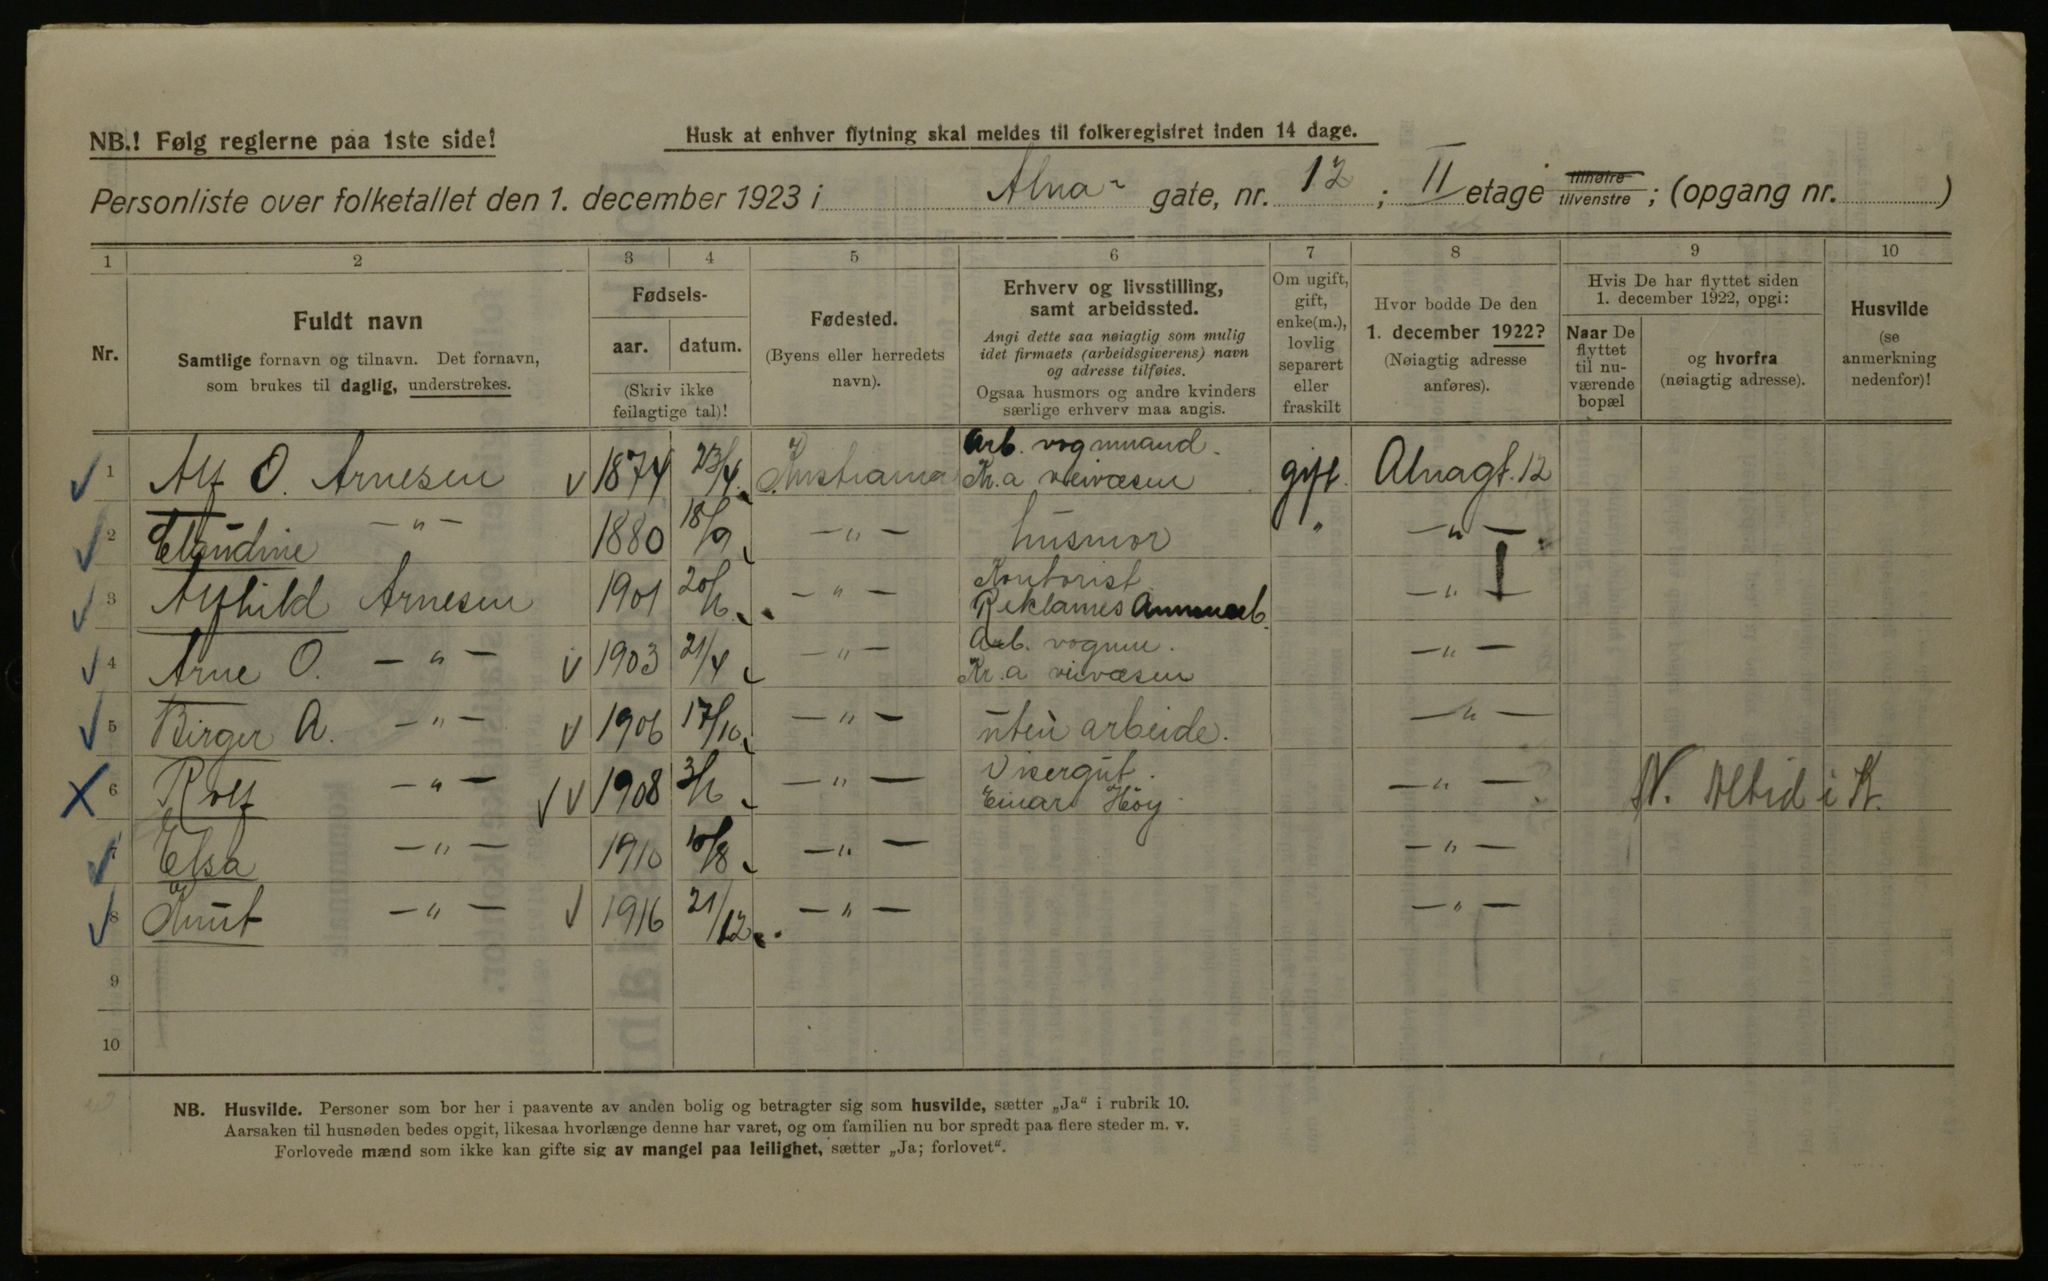 NB.! Følg reglerne paa 1ste side!
Husk at enhver flytning skal meldes til folkeregistret inden 14 dage.
Personliste over folketallet den 1. december 1923 i Alna- gate, nr. 12 ; II etage tilhøire tilvenstre ; (opgang nr. )
1 2 3 4 5 6 7 8 9 10
Nr.
Fuldt navn
Samtlige fornavn og tilnavn. Det fornavn,
som brukes til daglig, understrekes.
Fødsels-
aar. datum.
(Skriv ikke
feilagtige tal)!
Fødested.
(Byens eller herredets
navn).
Erhverv og livsstilling,
samt arbeidssted.
Angi dette saa nøiagtig som mulig
idet firmaets (arbeidsgiverens) navn
og adresse tilføies.
Ogsaa husmors og andre kvinders
særlige erhverv maa angis.
Om ugift,
gift,
enke(m.),
lovlig
separert
eller
fraskilt
Hvor bodde De den
1. december 1922?
(Nøiagtig adresse
anføres).
Hvis De har flyttet siden
1. december 1922, opgi:
Naar De
flyttet
til nu-
værende
bopæl
og hvorfra
(nøiagtig adresse).
Husvilde
(se
anmerkning
nedenfor)!
Arb. vognmand.
1 Alf O. Arnesen 1874 23/4 Kristiania Kr.a veivæsen gift. Alnagt. 12
2 Claudine — " — 1880 18/9 — " — husmor " — " —
Kontorist
3 Alfhild Arnesen 1901 20/ — " — Reklames — " —
Arb. vognm.
4 Arne O. — " — 1903 21/4 — " — Kr.a veivæsen — " —
5 Birger A. — " — 1906 17/10 — " — uten arbeide. — " —
Visergut.
6 Rolf — " — 1908 3/ — " — Einar Høy — " — N. Altid i K.
7 Elsa — " — 1910 10/8 — " — — " —
8 Knut — " — 1916 21/12 — " — — " —
9
10
NB. Husvilde. Personer som bor her i paavente av anden bolig og betragter sig som husvilde, sætter „Ja“ i rubrik 10.
Aarsaken til husnøden bedes opgit, likesaa hvorlænge denne har varet, og om familien nu bor spredt paa flere steder m. v.
Forlovede mænd som ikke kan gifte sig av mangel paa leilighet, sætter „Ja; forlovet“.